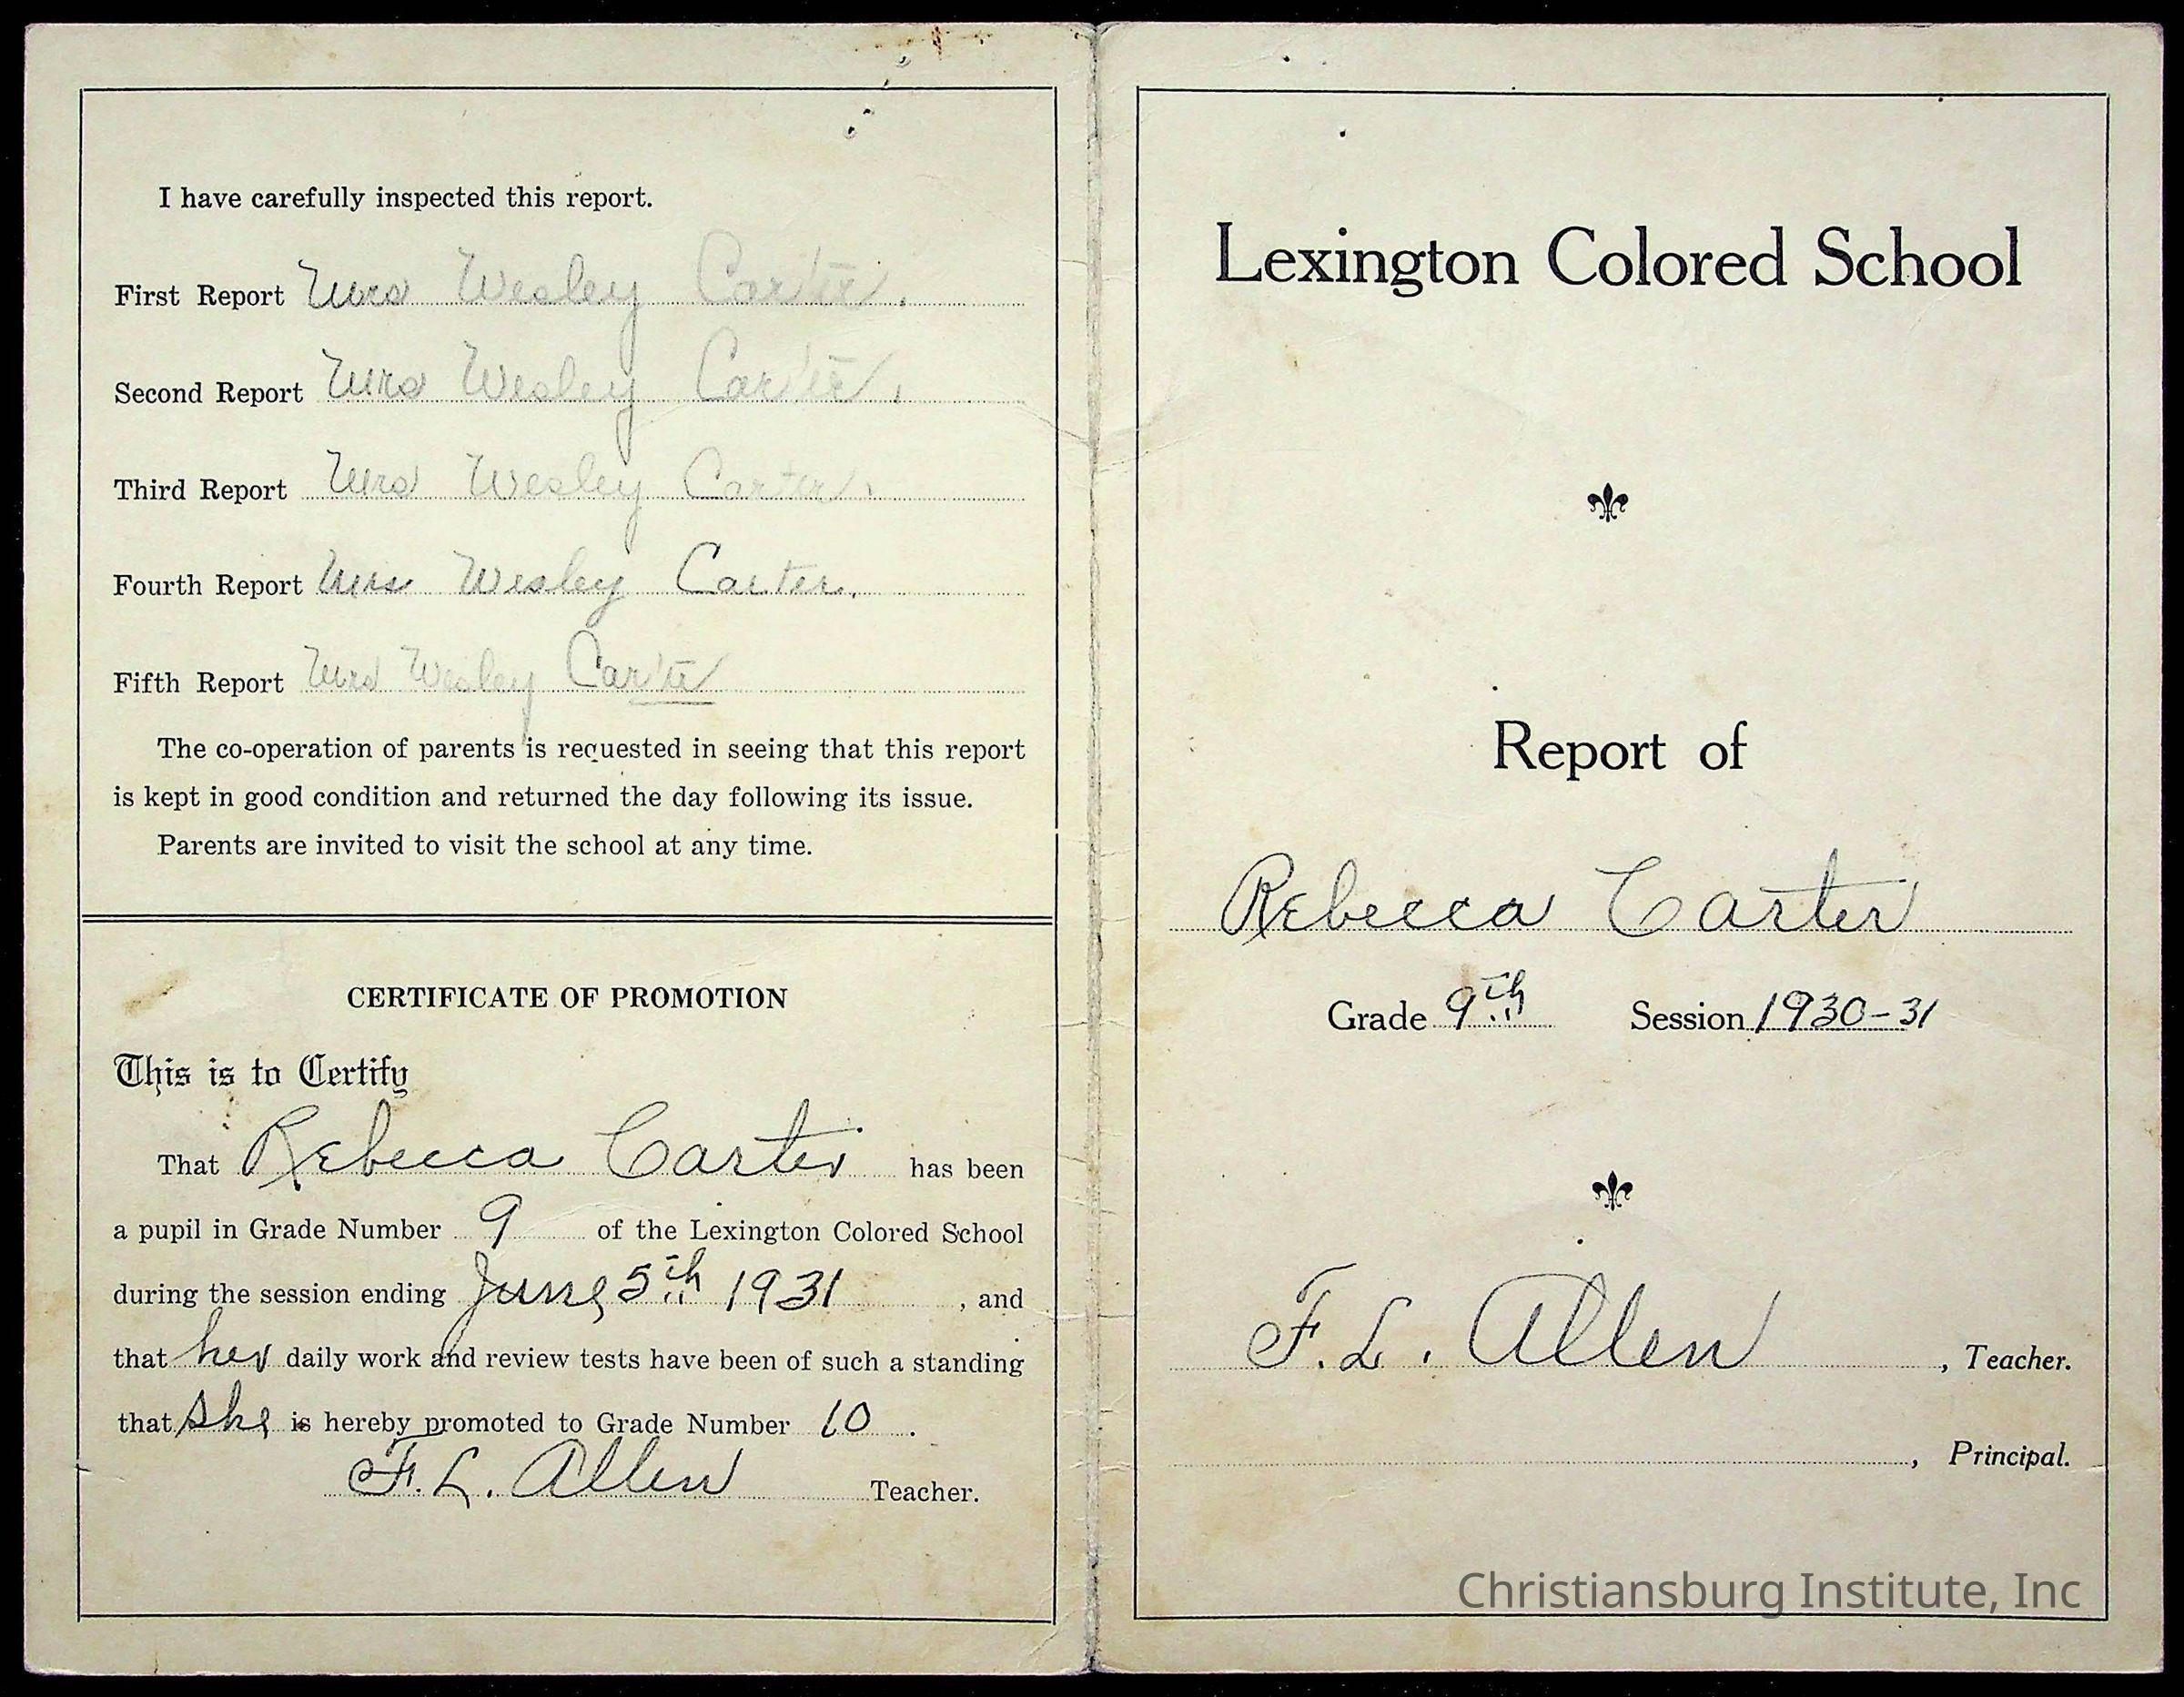 I have carefully inspected this report.
First Report Mrs Wesley Carter.
Second Report Mrs Wesley Carter.
Third Report Mrs Wesley Carter.
Fourth Report Mrs Wesley Carter.
Fifth Report Mrs Wesley Carter
The co-operation of parents is requested in seeing that this report
is kept in good condition and returned the day following its issue.
Parents are invited to visit the school at any time.
CERTIFICATE OF PROMOTION
This is to Certify
That Rebecca Carter has been
a pupil in Grade Number 9 of the Lexington Colored School
during the session ending June 5th 1931, and
that her daily work and review tests have been of such a standing
that she is hereby promoted to Grade Number 10.
F. L. Allen Teacher.
Lexington Colored School
Report of
Rebecca Carter
Grade 9th Session 1930-31
F. L. Allen, Teacher.
, Principal.
Christiansburg Institute, Inc